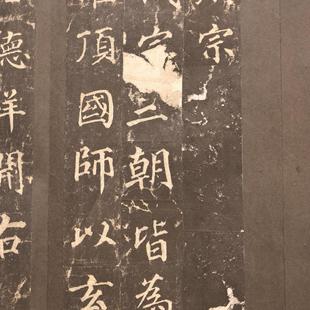 宗
宗三朝皆為
頂國師以玄
德祥開右